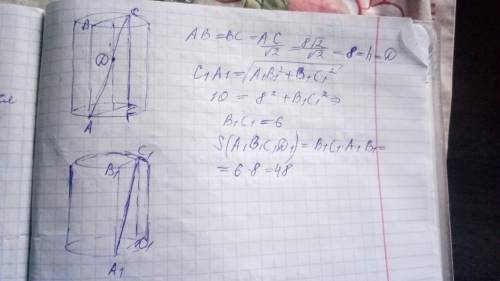 B
C
D
A
F
AB=BC=AC/√2=8√2/√2=8=h=D
C₁A₁=√A₁B₁²+B₁C₁²
10=8²+B₁C₁²⇒
B₁C₁=6
S(A₁B₁C₁D₁)=B₁C₁·A₁B₁=
=6·8=48
C₁
B₁
D₁
A₁